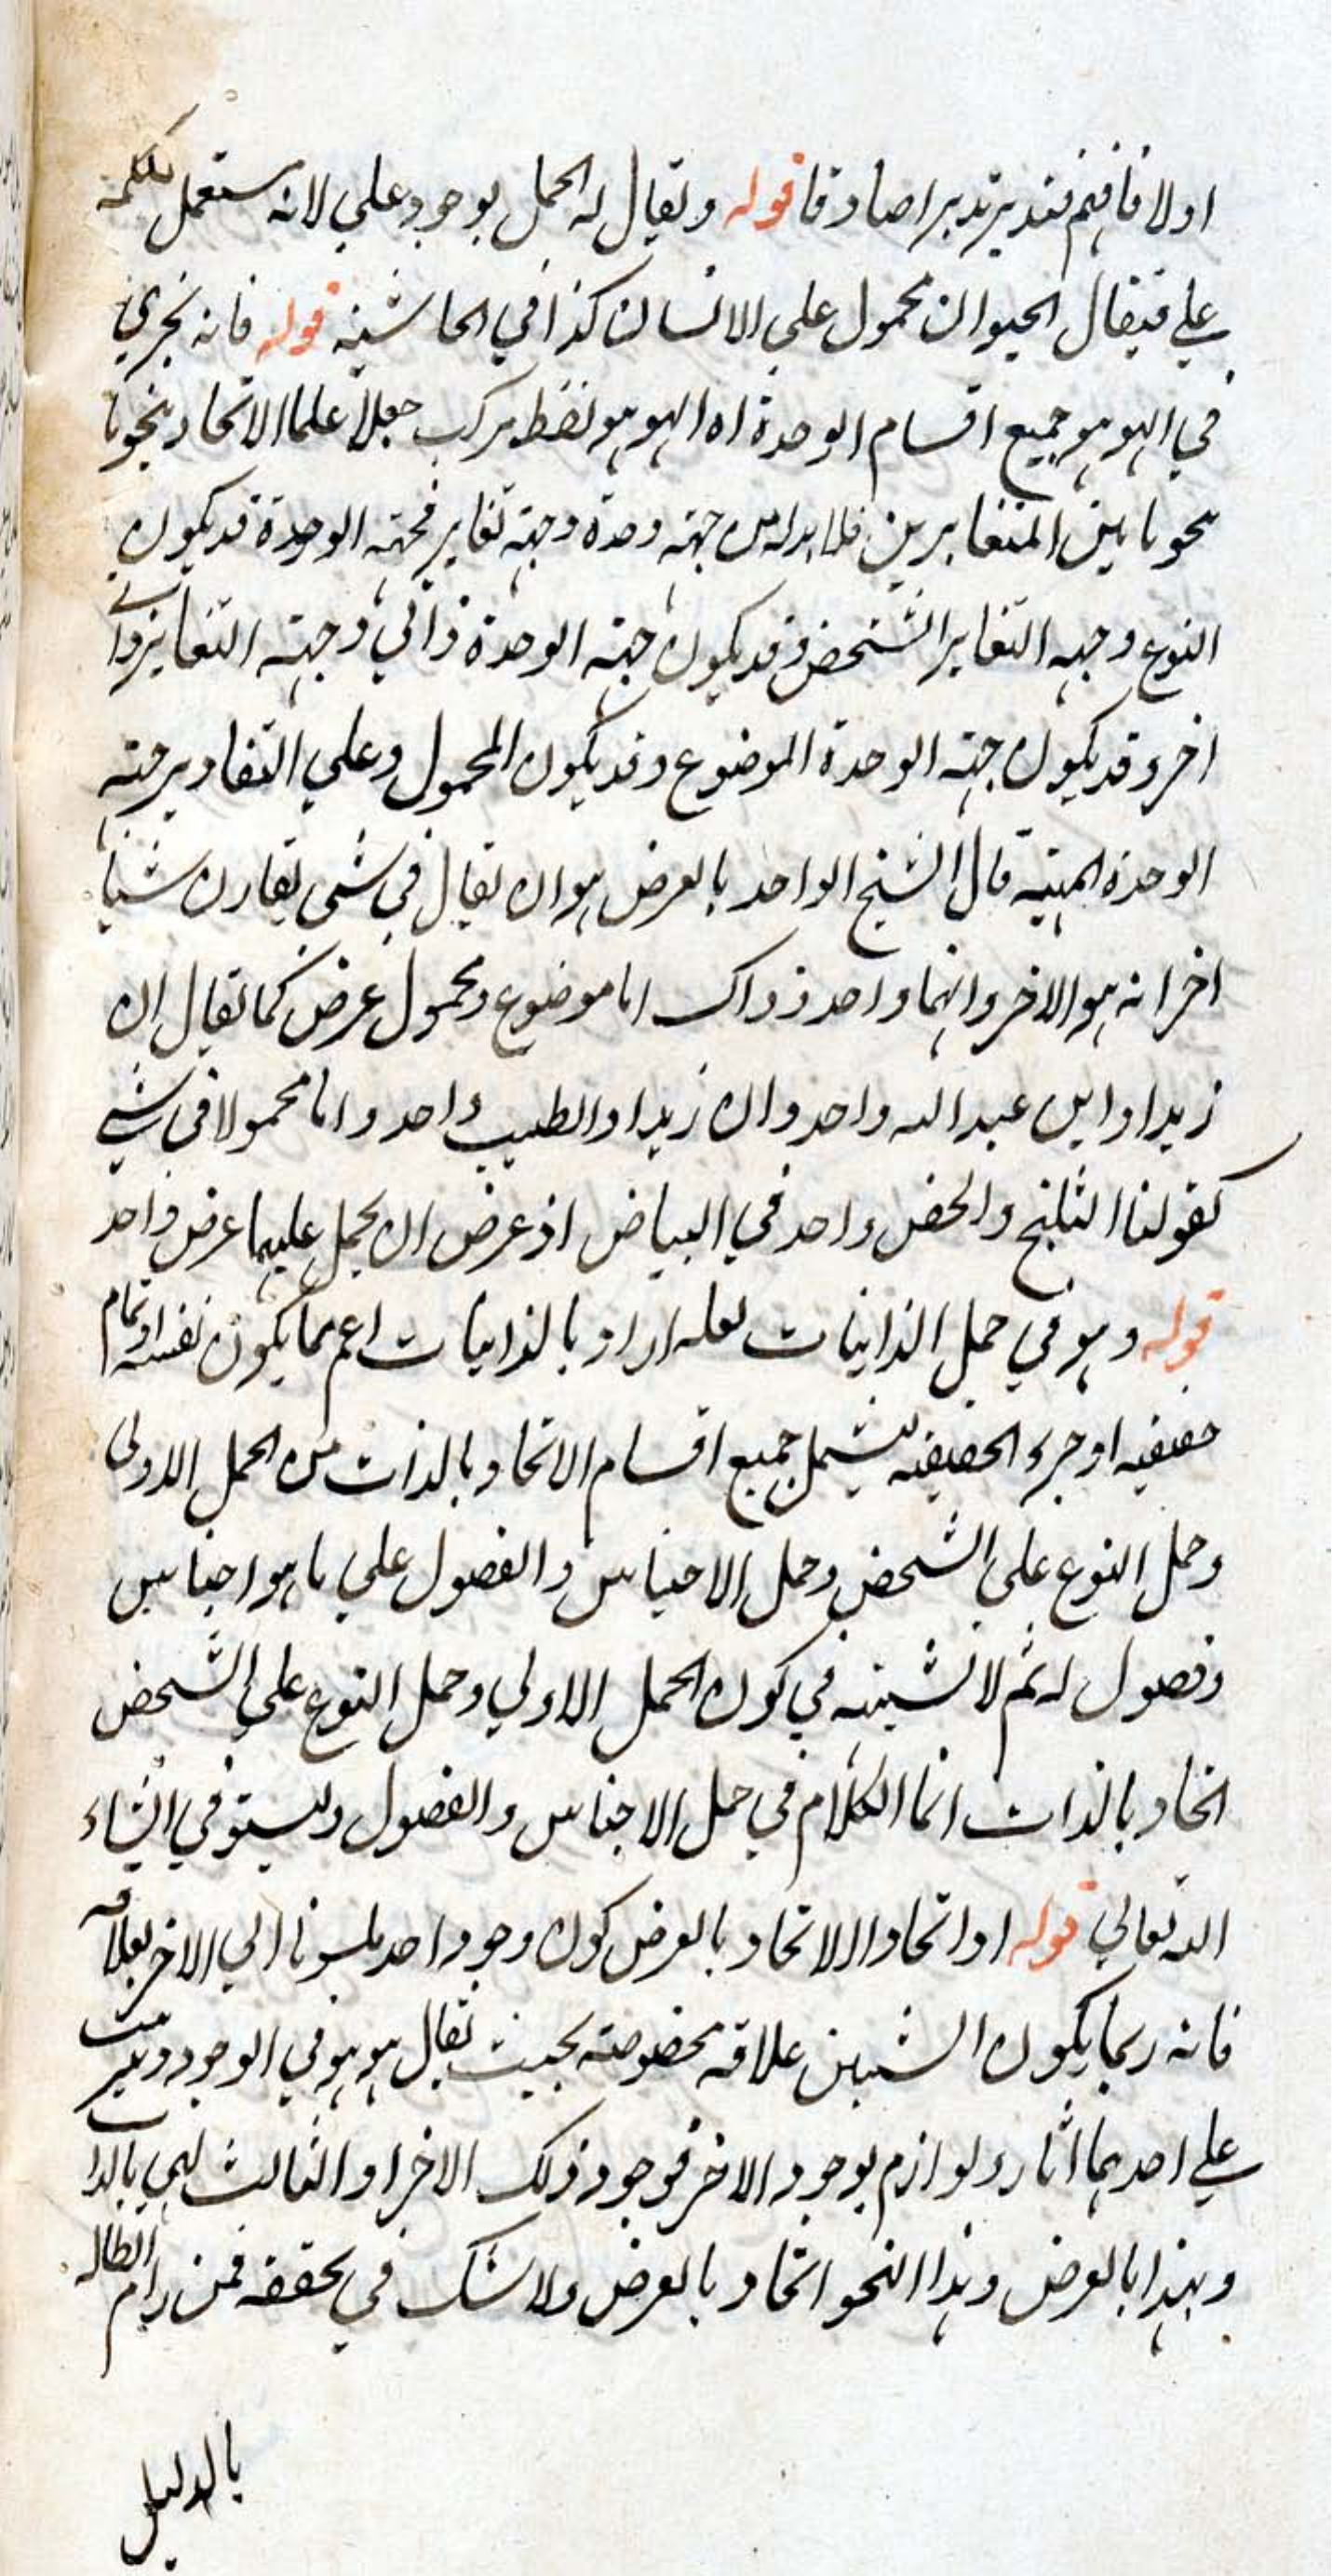 اولا فافهم فتدبر تدبرا صادقا قوله ويقال له الحمل بوجود علي لانه يستعمل بكلمة
علي فيقال الحيوان محمول علي الانسان كذا في الحاشية قوله فانه يجري
في الهو هو جميع اقسام الوحدة اه الهو هو لفظ مركب جعلا علما الاتحاد بنحو ما
نحو ما بين المتغايرين فلابد له من جهة وحدة وجهة تغاير فجهة الوحدة قد يكون
النوع وجهه التغاير الشخص وقد يكون جهة الوحدة ذاتي وجهة التغاير ذاتي
اخر وقد يكون جهة الوحدة الموضوع وقد يكون المحمول وعلي التقادير جهة
الوحدة قال الشيخ الواحد بالعرض هو ان يقال في شي يقارن شيئا
اخر انه هو الاخر وانهما واحد وذاك اما موضوع ومحمول عرض كما يقال ان
زيدا وابن عبد الله واحد وان زيدا والطبيب واحد واما محمولا في شي
كقولنا الثلج والجص واحد في البياض اذ عرض ان يحمل عليهما عرض واحد
قوله وهو في حمل الذاتيات لعله اراد بالذاتيات اعم مما يكون نفسه او تمام
حقيقيه او جزء الحقيقيه ليشمل جميع اقسام الاتحاد بالذات من الحمل الاولي
وحمل النوع علي الشخص وحمل الاجناس والفصول علي ما هو اجناس
وفصول له ثم لا شبهة في كون الحمل الاولي وحمل النوع علي الشخص
اتحاد بالذات انما الكلام في حمل الاجناس والفصول وليستوفي انشاء
الله تعالي قوله او اتحادا الاتحاد بالعرض كون وجود احد منسوبا الي الاخر بعلاقة
فانه ربما يكون الشيئين علاقة مخصوصة بحيث يقال هو هو في الوجود ويترتب
علي احدهما اثار ولوازم بوجود الاخر فوجود ذلك الاخر او الثالث لهي بالذات
وبهذا بالعرض وهذا النحو اتحاد بالعرض ولا شك في تحققه فمن رام ابطاله
بالدليل